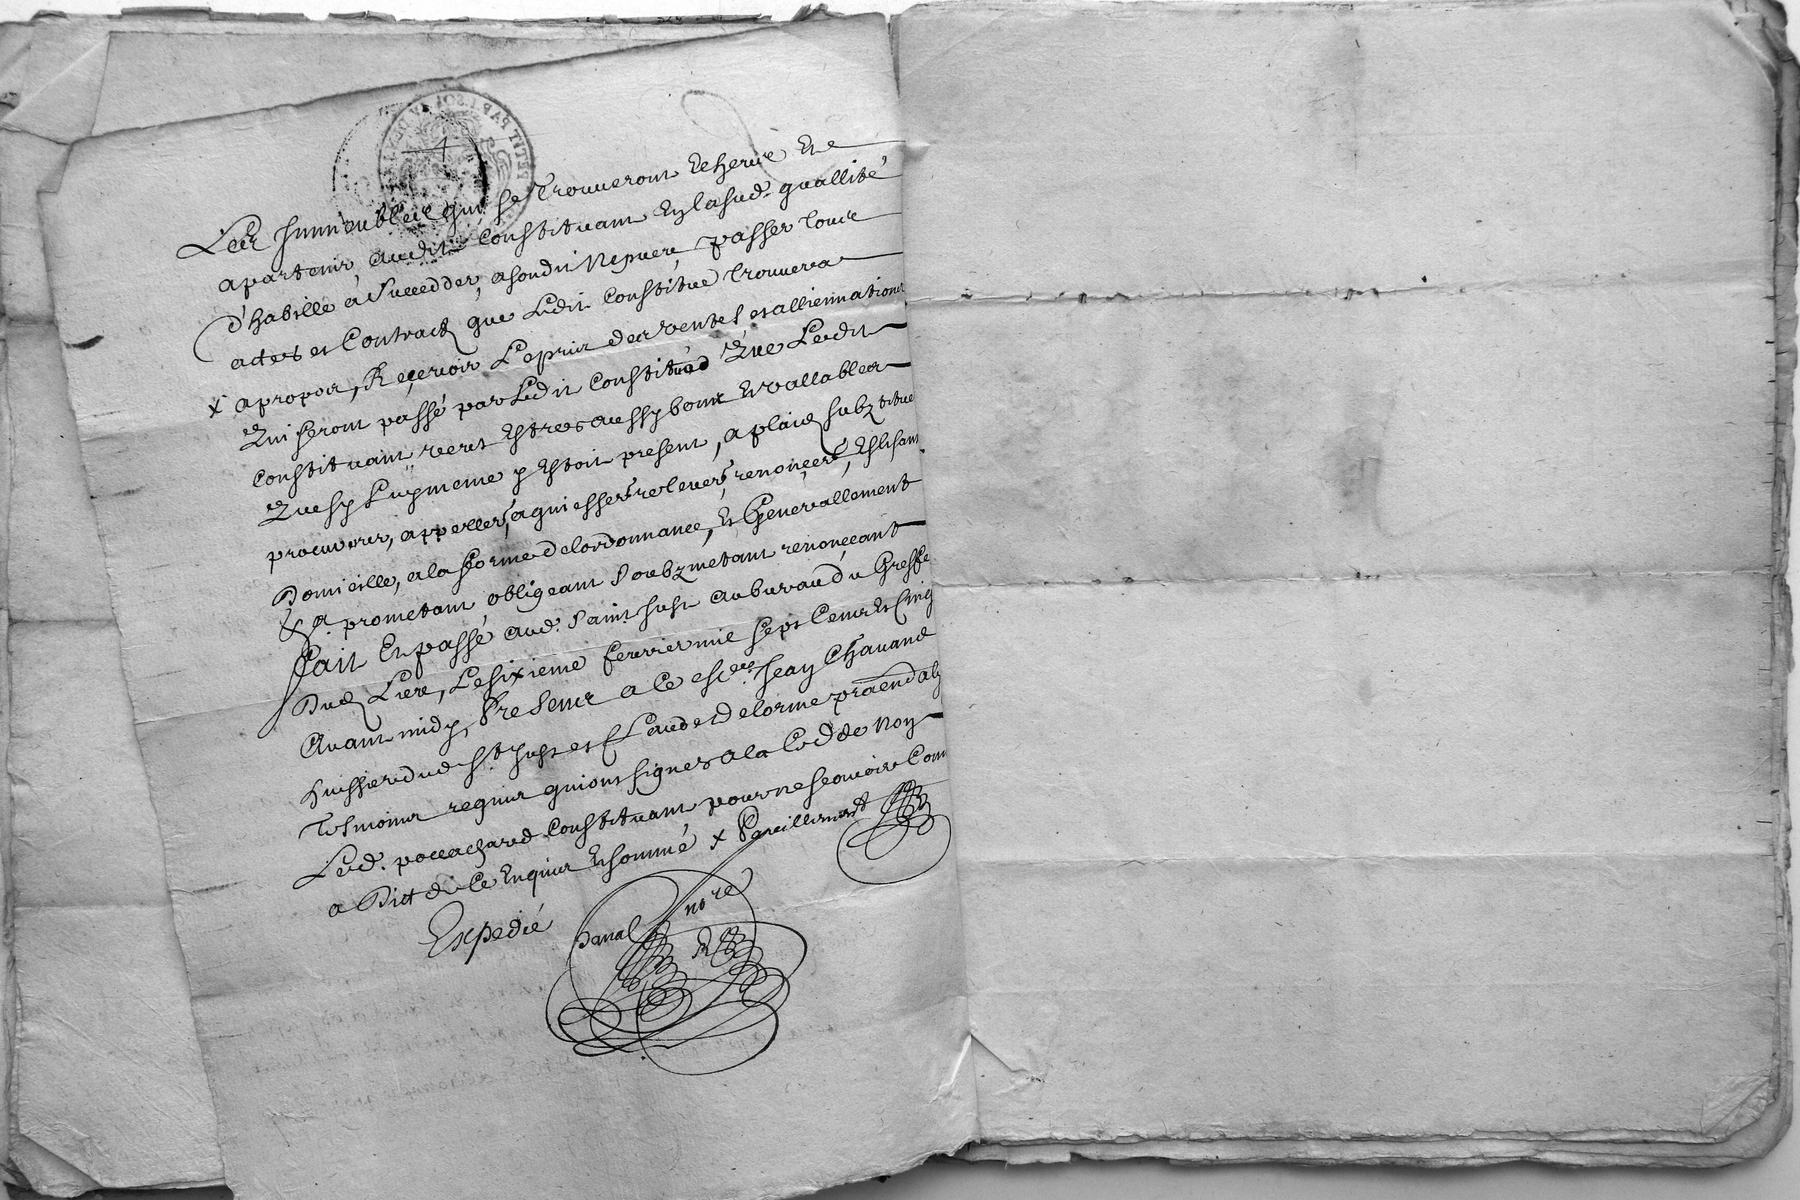 Les Immeubles qui se Trouueront
apartenir audit Constituant En lasud. quallité
d'habille à Succedder, asondit Nepueu, passer tous
actes et Contractz que Ledit Constitué Trouuera
x apropos, Reçeuoir Leprix des ventes et alliennations
Qui seront passé par Ledit Constitué Que Ledit
Constituant veut Estres aussy bons Et vallables
Que sy Luy meme y Estoit present, a plaid substitue
procureur, appeller, aquiesser, relever, renonçer, Eslisant
Domicille, a la forme delordonnance, Et Generallement
&a. prometant obligeant Soubzmetant renonceant
Fait Et passé aud. Saint Just au bureau du Greffe
Dud Lieu, Lesixieme feuvrier mil sept Cent Et Cinq
Auant midy, Presents a Ce Jean Chauand
huissier dud St. Just et Claude Delorme
Tesmoins requis qui ont signes a la Ced de Non
Led. Constituant pour ne scauoire Comm
a Dict de Ce Enquis Et sommé x Pareillement
Expedié
Danal nore